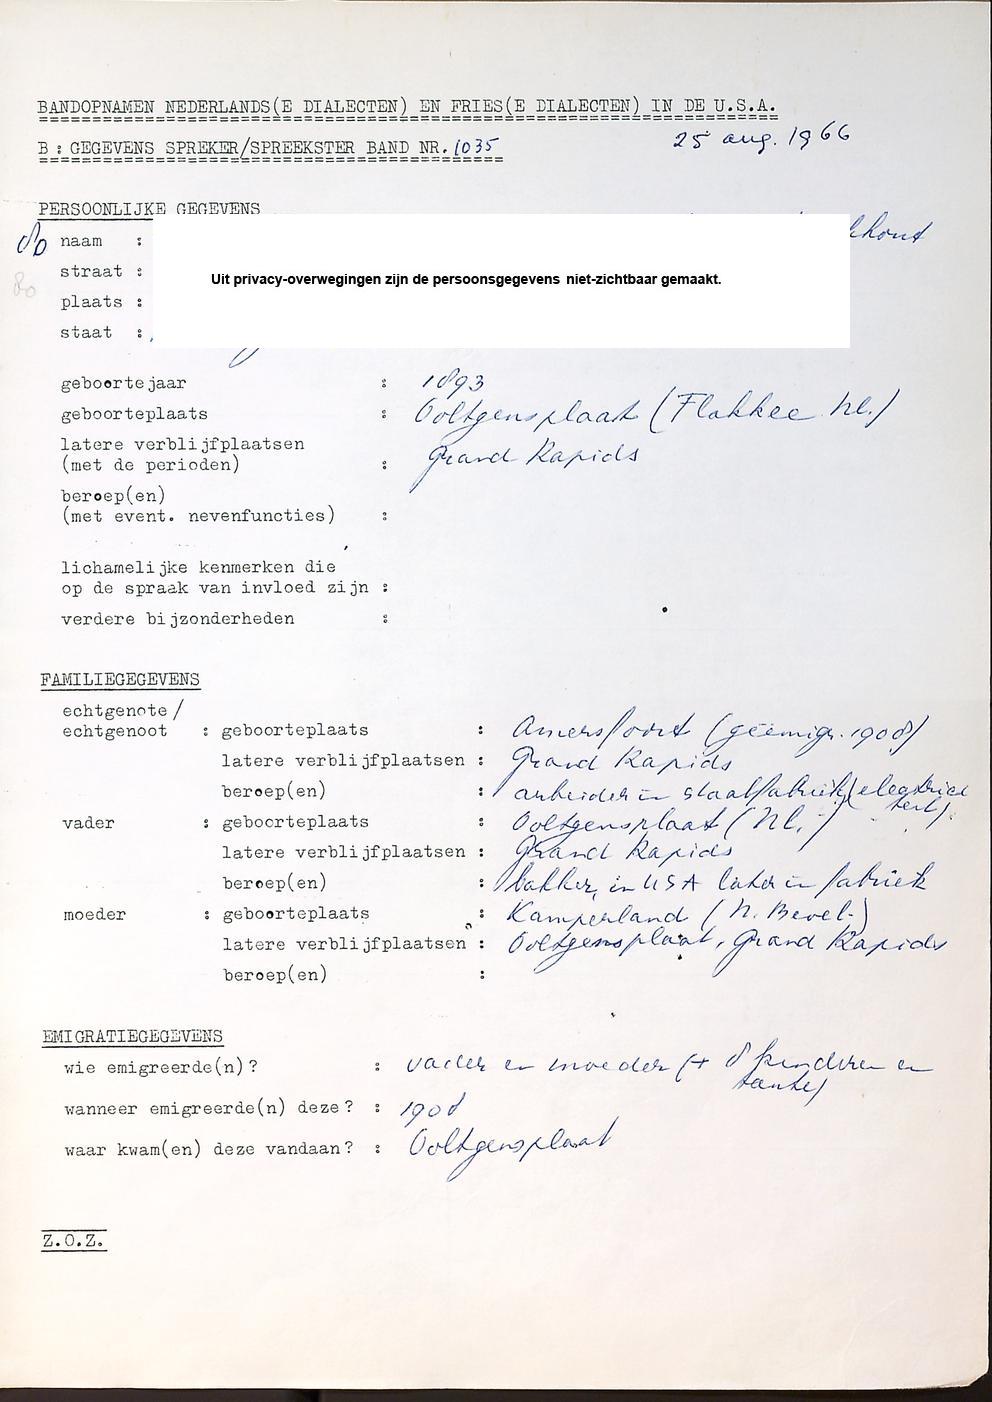 BANDOPNAMEN NEDERLANDS(E DIALECTEN) EN FRIES(E DIALECTEN) IN DE U.S.A.
25 aug. 1966
B: GEGEVENS SPREKER/SPREEKSTER BAND NR. 1035
PERSOONLIJKE GEGEVENS
80 naam : khout
80 straat :
Uit privacy-overwegingen zijn de persoonsgegevens niet-zichtbaar gemaakt.
plaats :
staat :
geboortejaar : 1893
geboorteplaats : Ooltgensplaat (Flakkee Nl.)
latere verblijfplaatsen
(met de perioden) : Grand Rapids
beroep(en)
(met event. nevenfuncties) :
lichamelijke kenmerken die
op de spraak van invloed zijn :
verdere bijzonderheden :
FAMILIEGEGEVENS
echtgenote/
echtgenoot : geboorteplaats : Amersfoort (geëmigr. 1908)
latere verblijfplaatsen : Grand Rapids
beroep(en) : arbeider in staalfabriek
vader : geboorteplaats : Ooltgensplaat (Nl.)
latere verblijfplaatsen : Grand Rapids
beroep(en) : bakker, in USA later in fabriek
moeder : geboorteplaats : Kamperland (N. Bevel.)
latere verblijfplaatsen : Ooltgensplaat, Grand Rapids
beroep(en) :
EMIGRATIEGEGEVENS
wie emigreerde(n)? : vader en moeder (+ 8 kinderen en
tante)
wanneer emigreerde(n) deze? : 1908
waar kwam(en) deze vandaan? : Ooltgensplaat
Z.O.Z.